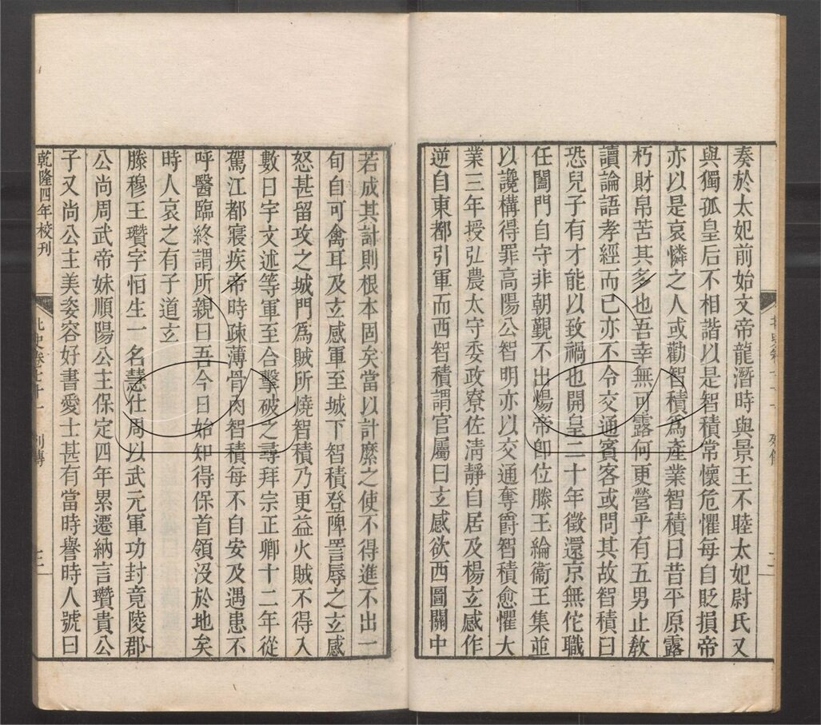 奏於太妃前始文帝龍潛時與景王不睦太妃尉氏又
與獨孤皇后不相諧以是智積常懷危懼每自貶損帝
亦以是哀憐之人或勸智積爲產業智積曰昔平原露
朽財帛苦其多也吾幸無可露何更營乎有五男止教
讀論語孝經而已亦不令交通賓客或問其故智積曰
恐兒子有才能以致禍也開皇二十年徵還京無佗職
任闔門自守非朝覲不出煬帝卽位滕王綸衞王集並
以讒構得罪高陽公智明亦以交通奪爵智積愈懼大
業三年授弘農太守委政寮佐淸靜自居及楊玄感作
逆自東都引軍而西智積謂官屬曰玄感欲西圖關中
若成其計則根本固矣當以計縻之使不得進不出一
旬自可禽耳及玄感軍至城下智積登陴詈辱之玄感
怒甚留攻之城門爲賊所燒智積乃更益火賊不得入
數日宇文述等軍至合擊破之尋拜宗正卿十二年從
駕江都寢疾帝時疎薄骨肉智積每不自安及遇患不
呼醫臨終謂所親曰吾今日始知得保首領沒於地矣
時人哀之有子道玄
滕穆王瓚字恒生一名慧仕周以武元軍功封竟陵郡
公尚周武帝妹順陽公主保定四年累遷納言瓚貴公
子又尚公主美姿容好書愛士甚有當時譽時人號曰
乾隆四年校刊
北史卷七十一 列傳